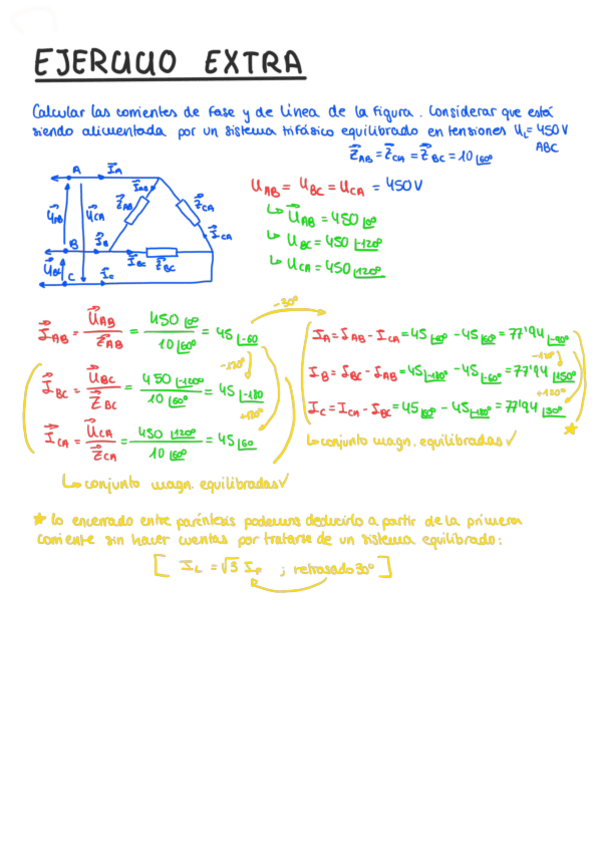 EJERCICIO EXTRA
Calcular las corrientes de fase y de línea de la figura. Considerar que está
siendo alimentada por un sistema trifásico equilibrado en tensiones UL = 450V
ABC
Z̄AB = Z̄CA = Z̄BC = 10 |60º
A IA
IAB
ZAB ZCA
UAB UCA
ICA
B IB
IBC ZBC
UBC
C IC
UAB = UBC = UCA = 450V
↳ UAB = 450 |0º
↳ UBC = 450 |-120º
↳ UCA = 450 |120º
-30º
IAB = UAB / ZAB = 450 |0º / 10 |60º = 45 |-60
-120º
IBC = UBC / ZBC = 450 |-120º / 10 |60º = 45 |-180
+120º
ICA = UCA / ZCA = 450 |120º / 10 |60º = 45 |60
↳ conjunto magn. equilibradas ✓
IA = IAB - ICA = 45 |-60º - 45 |60º = 77'94 |-90º
-120º
IB = IBC - IAB = 45 |-180º - 45 |-60º = 77'94 |150º
+120º
IC = ICA - IBC = 45 |60º - 45 |-180º = 77'94 |30º
↳ conjunto magn. equilibradas ✓
★
★ lo encerrado entre paréntesis podemos deducirlo a partir de la primera
corriente sin hacer cuentas por tratarse de un sistema equilibrado:
[ IL = √3 IF ; retrasado 30º ]